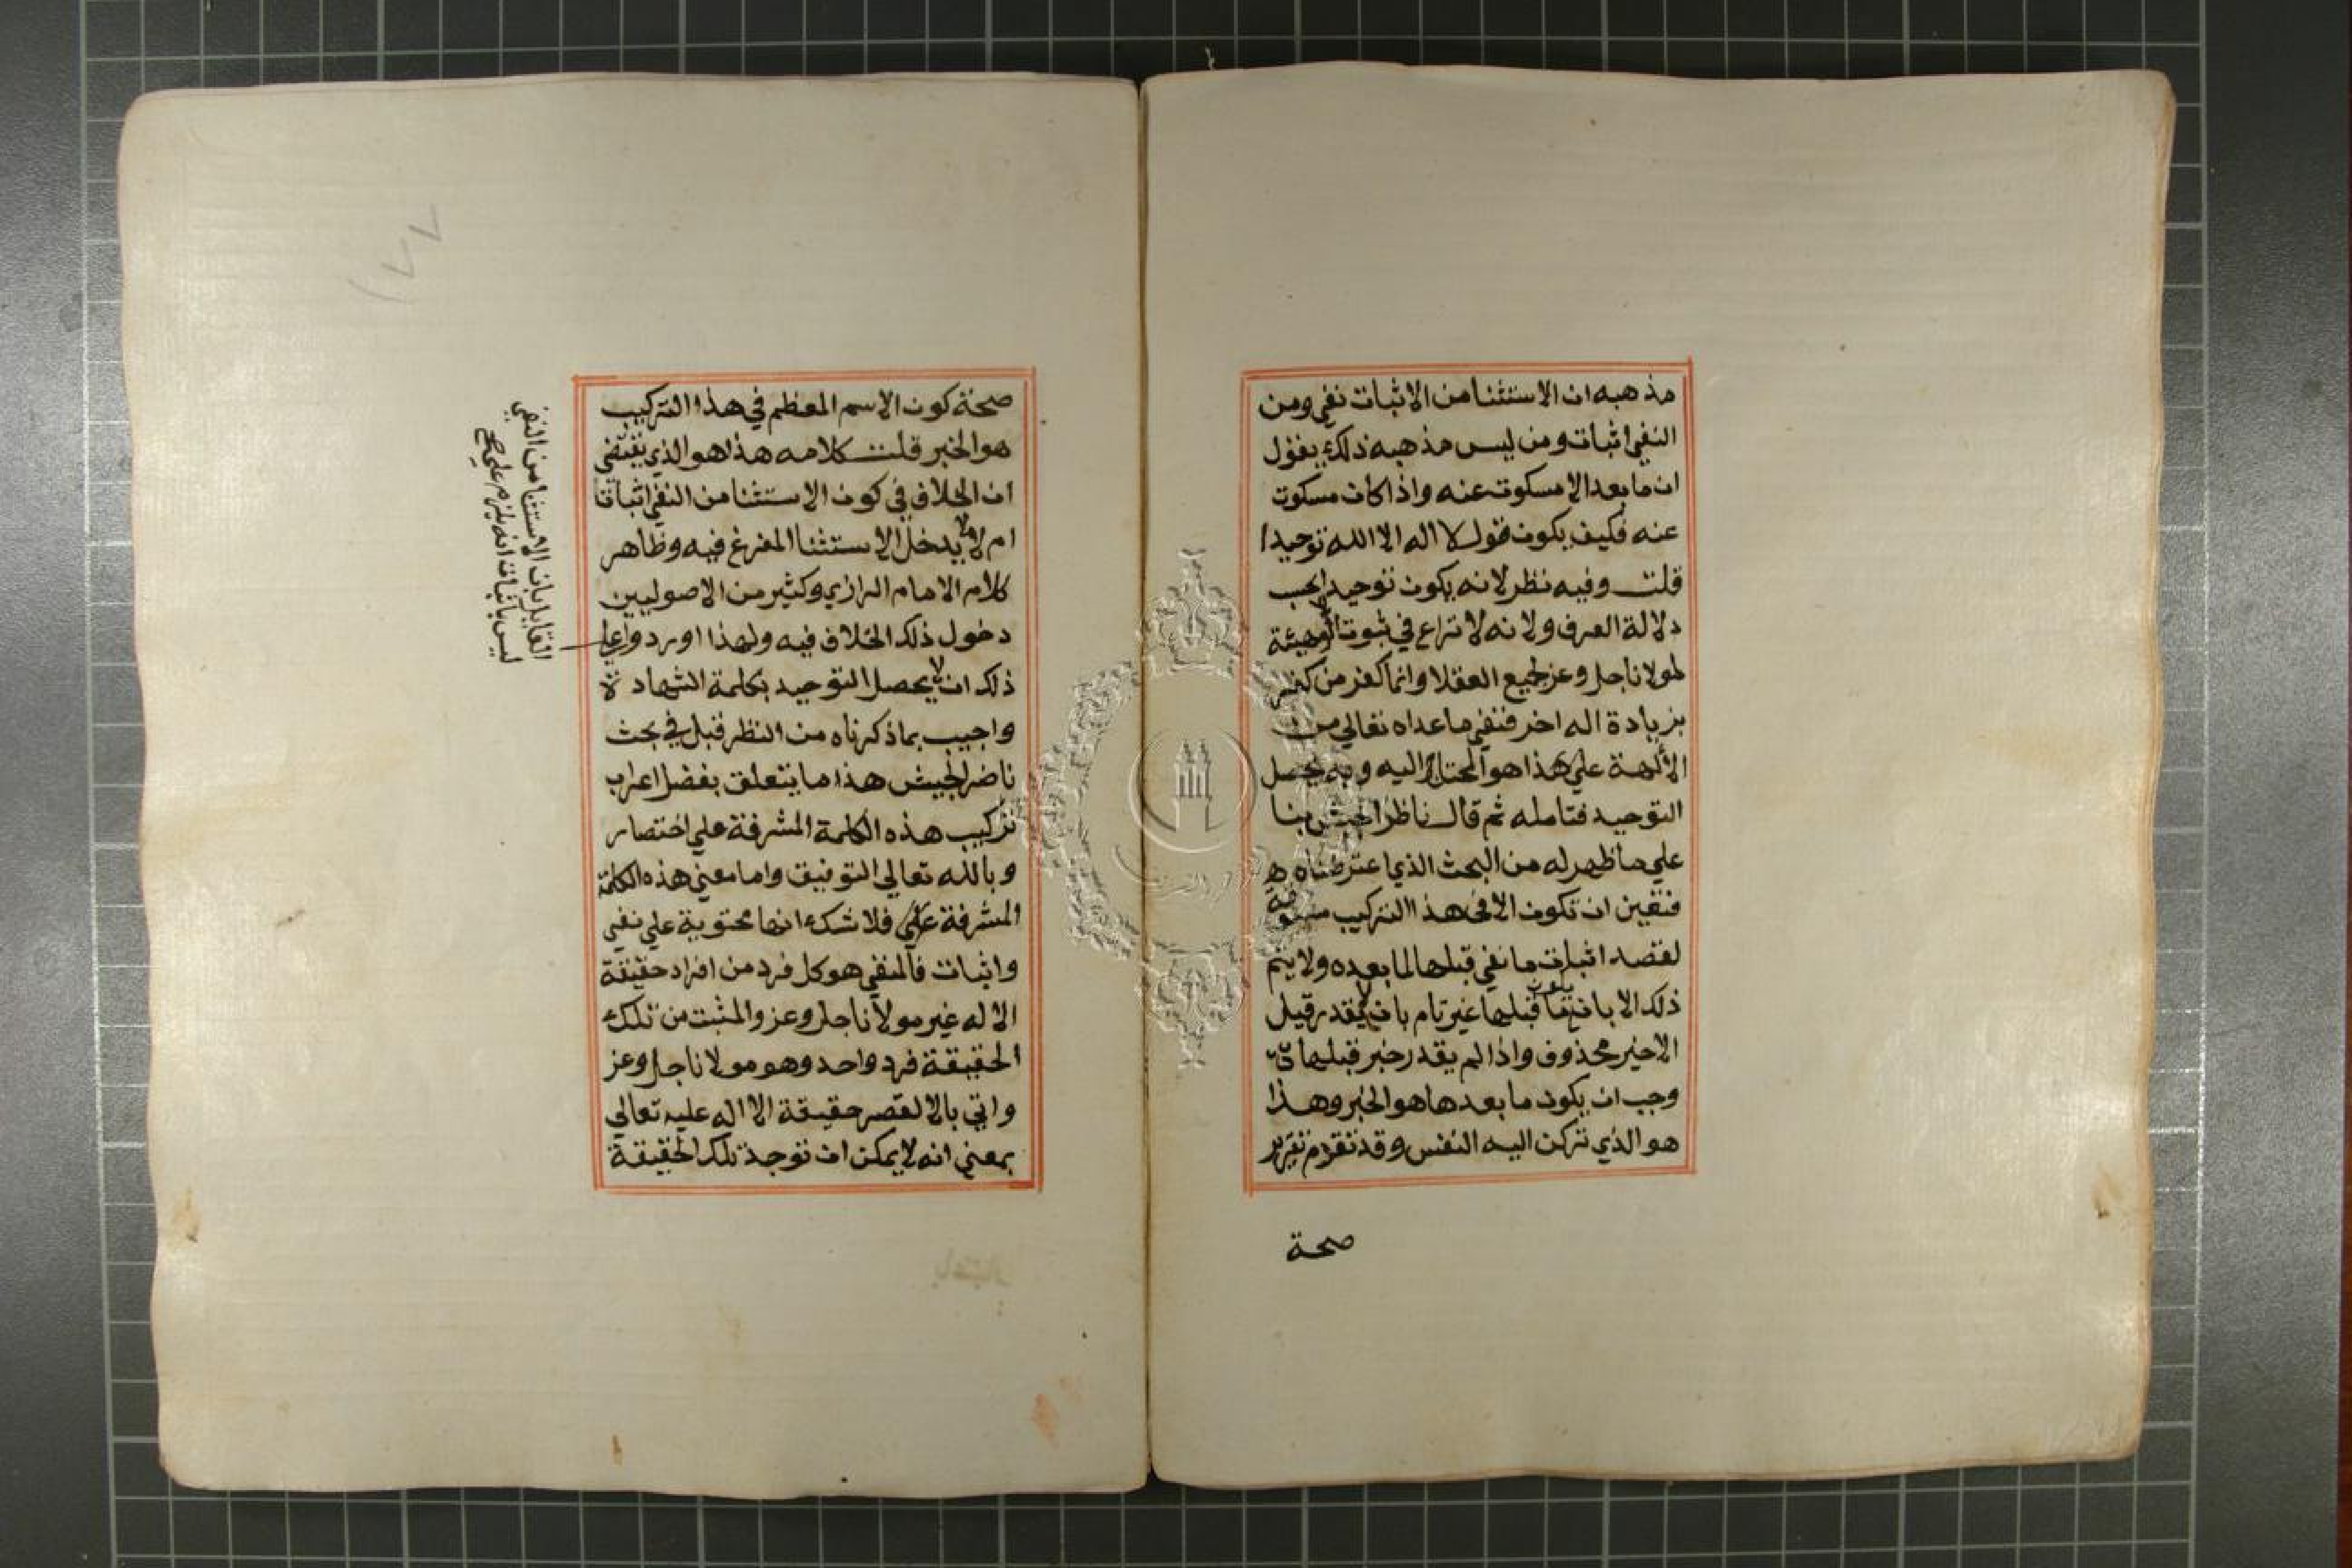 مذهبه ان الاستثنا من الاثبات نفي ومن
النفي اثبات ومن ليس مذهبه ذلك يقول
ان ما بعد الا مسكوت عنه واذا كان مسكوت
عنه فكيف يكون قول لا اله الا الله توحيدا
قلت وفيه نظر لانه يكون توحيدا بحسب
دلالة العرف ولانه لا نزاع في ثبوت الوهيئة
لمولانا جل وعز لجميع العقلا وانما كفر من كفر
بزيادة اله اخر فنفي ما عداه تعالي من
الألهة علي هذا هو المحتاج اليه وبه يحصل
التوحيد فتامله ثم قال ناظر الجيش بنا
علي ما ظهر له من البحث الذي اعترضناه
فتعين ان تكون الا في هذا التركيب مسوقة
لقصد اثبات ما نفي قبلها لما بعده ولا يتم
ذلك الا بان يكون ما قبلها غير تام بان لا يقدر قبل
الا خبر محذوف واذا لم يقدر خبر قبلها
وجب ان يكون ما بعدها هو الخبر وهذا
هو الذي تركن اليه النفس وقد تقدم تقرير
صحة
صحة كون الاسم المعظم في هذا التركيب
هو الخبر قلت كلامه هذا هو الذي يقتضي
ان الخلاف في كون الاستثنا من النفي اثباتا
ام لا لا يدخل الاستثنا المفرغ فيه وظاهر
كلام الامام الرازي وكثير من الاصوليين
دخول ذلك الخلاف فيه ولهذا اوردوا علي
ذلك ان لا يحصل التوحيد بكلمة الشهادة
واجيب بما ذكرناه من النظر قبل في بحث
ناضر الجيش هذا ما يتعلق بفضل اعراب
تركيب هذه الكلمة المشرفة علي اختصار
وبالله تعالي التوفيق واما معني هذه الكلمة
المشرفة علي فلا شك انها محتوية علي نفي
واثبات فالمنفي هو كل فرد من افراد حقيقة
الاله غير مولانا جل وعز والمثبت من تلك
الحقيقة فرد واحد وهو مولانا جل وعز
واتي بالا لقصر حقيقة الا اله عليه تعالي
بمعني انه لا يمكن ان توجد تلك الحقيقة
القايل بان الاستثنا من النفي
ليس باثبات انه يلزم علي